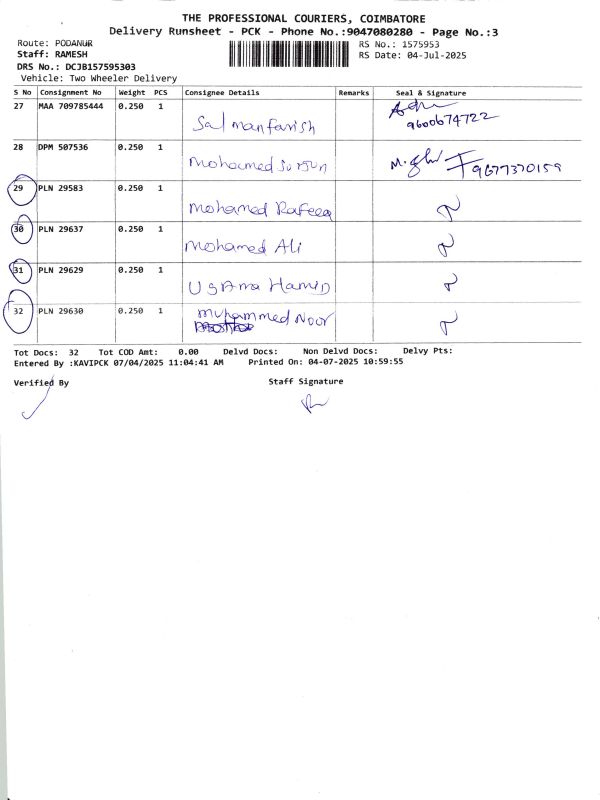 THE PROFESSIONAL COURIERS, COIMBATORE
Delivery Runsheet - PCK - Phone No.:9047080280 - Page No.:3
Route: PODANUR
Staff: RAMESH
DRS No.: DCJB157595303
Vehicle: Two Wheeler Delivery
RS No.: 1575953
RS Date: 04-Jul-2025
S No Consignment No Weight PCS Consignee Details Remarks Seal & Signature
27 MAA 709785444 0.250 1 Salmanfarish 9600674722
28 DPM 507536 0.250 1 Mohamed 9677370159
29 PLN 29583 0.250 1 Mohamed Rafeeq
30 PLN 29637 0.250 1 Mohamed Ali
31 PLN 29629 0.250 1 Usama Hamid
32 PLN 29630 0.250 1 Muhammed Noor
Tot Docs: 32 Tot COD Amt: 0.00 Delvd Docs: Non Delvd Docs: Delvy Pts:
Entered By :KAVIPCK 07/04/2025 11:04:41 AM Printed On: 04-07-2025 10:59:55
Verified By Staff Signature